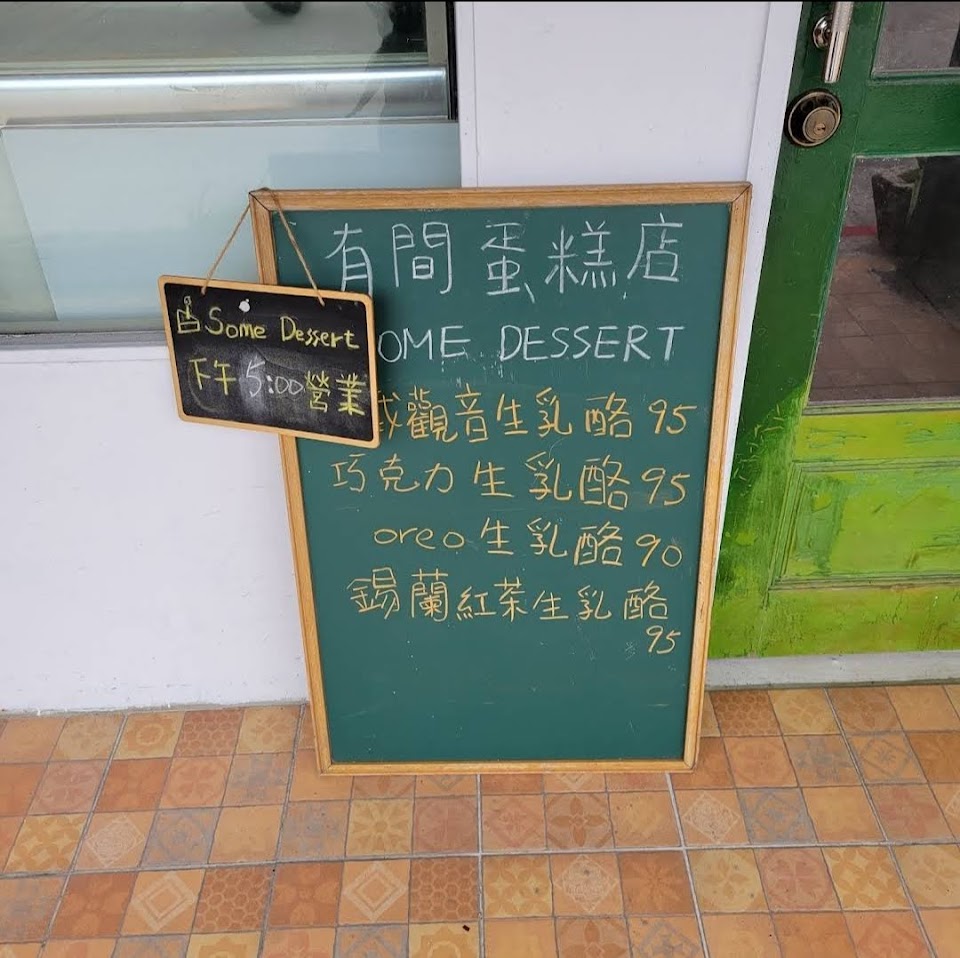 有間蛋糕店
OME DESSERT
觀音生乳酪 95
巧克力生乳酪 95
oreo生乳酪 90
錫蘭紅茶生乳酪
95
Some Dessert
下午 5:00 營業